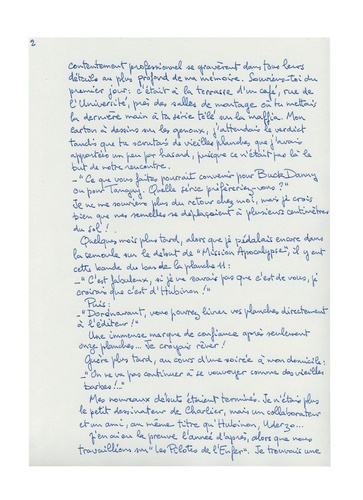 2
contentement professionnel se gravèrent dans tous leurs
détails au plus profond de ma mémoire. Souviens-toi du
premier jour: c'était à la terrasse d'un café, rue de
l'Université, près des salles de montage où tu mettais
la dernière main à ta série télé sur la maffia. Mon
carton à dessins sur les genoux, j'attendais le verdict
tandis que tu scrutais de vieilles planches que j'avais
apportées un peu par hasard, puisque ce n'était pas là le
but de notre rencontre.
_"Ce que vous faites pourrait convenir pour Buck Danny
ou pour Tanguy. Quelle série préféreriez-vous?"
Je ne me souviens plus du retour chez moi, mais je crois
bien que mes semelles se déplaçaient à plusieurs centimètres
du sol!
Quelques mois plus tard, alors que je pédalais encore dans
la semoule sur le début de "Mission Apocalypse", il y eut
cette bande du bas de la planche 11:
_"C'est fabuleux, si je ne savais pas que c'est de vous, je
croirais que c'est d'Hubinon!"
Puis:
_"Dorénavant, vous pourrez livrer vos planches directement
à l'éditeur!"
Une immense marque de confiance après seulement
onze planches... Je croyais rêver!
Guère plus tard, au cours d'une soirée à mon domicile:
_"On ne va pas continuer à se vouvoyer comme des vieilles
barbes!.."
Mes nouveaux débuts étaient terminés. Je n'étais plus
le petit dessinateur de Charlier, mais un collaborateur
et un ami, au même titre qu'Hubinon, Uderzo...
J'en ai eu la preuve l'année d'après, alors que nous
travaillions sur "Les Pilotes de l'Enfer". Je trouvais une